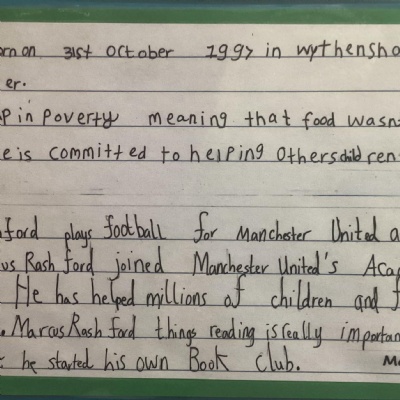 orn on 31st October 1997 in wythensha
er.
p in poverty meaning that food wasn
e is committed to helping others children
ford plays football for Manchester United a
us Rash ford joined Manchester United's Aca
He has helped millions of children and f
. Marcus Rash ford things reading is really importan
he started his own Book club. Ma